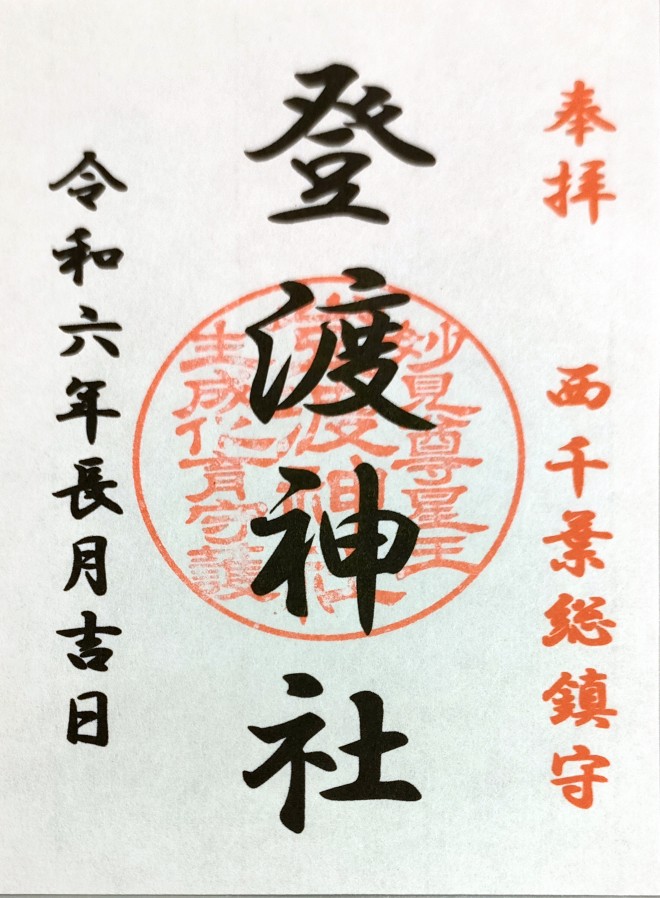 奉拝 西千葉総鎮守
登渡神社
妙見尊星王
登渡神社
生成化育守護
令和六年長月吉日